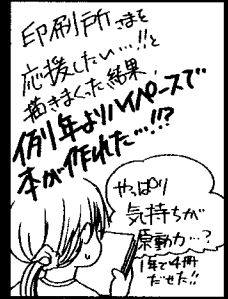 印刷所さまを
応援したい…!!と
描きまくった結果、
例年よりハイペースで
本が作れた…!!?
やっぱり
気持ちが
原動力…?
1年で4冊
だせた!!